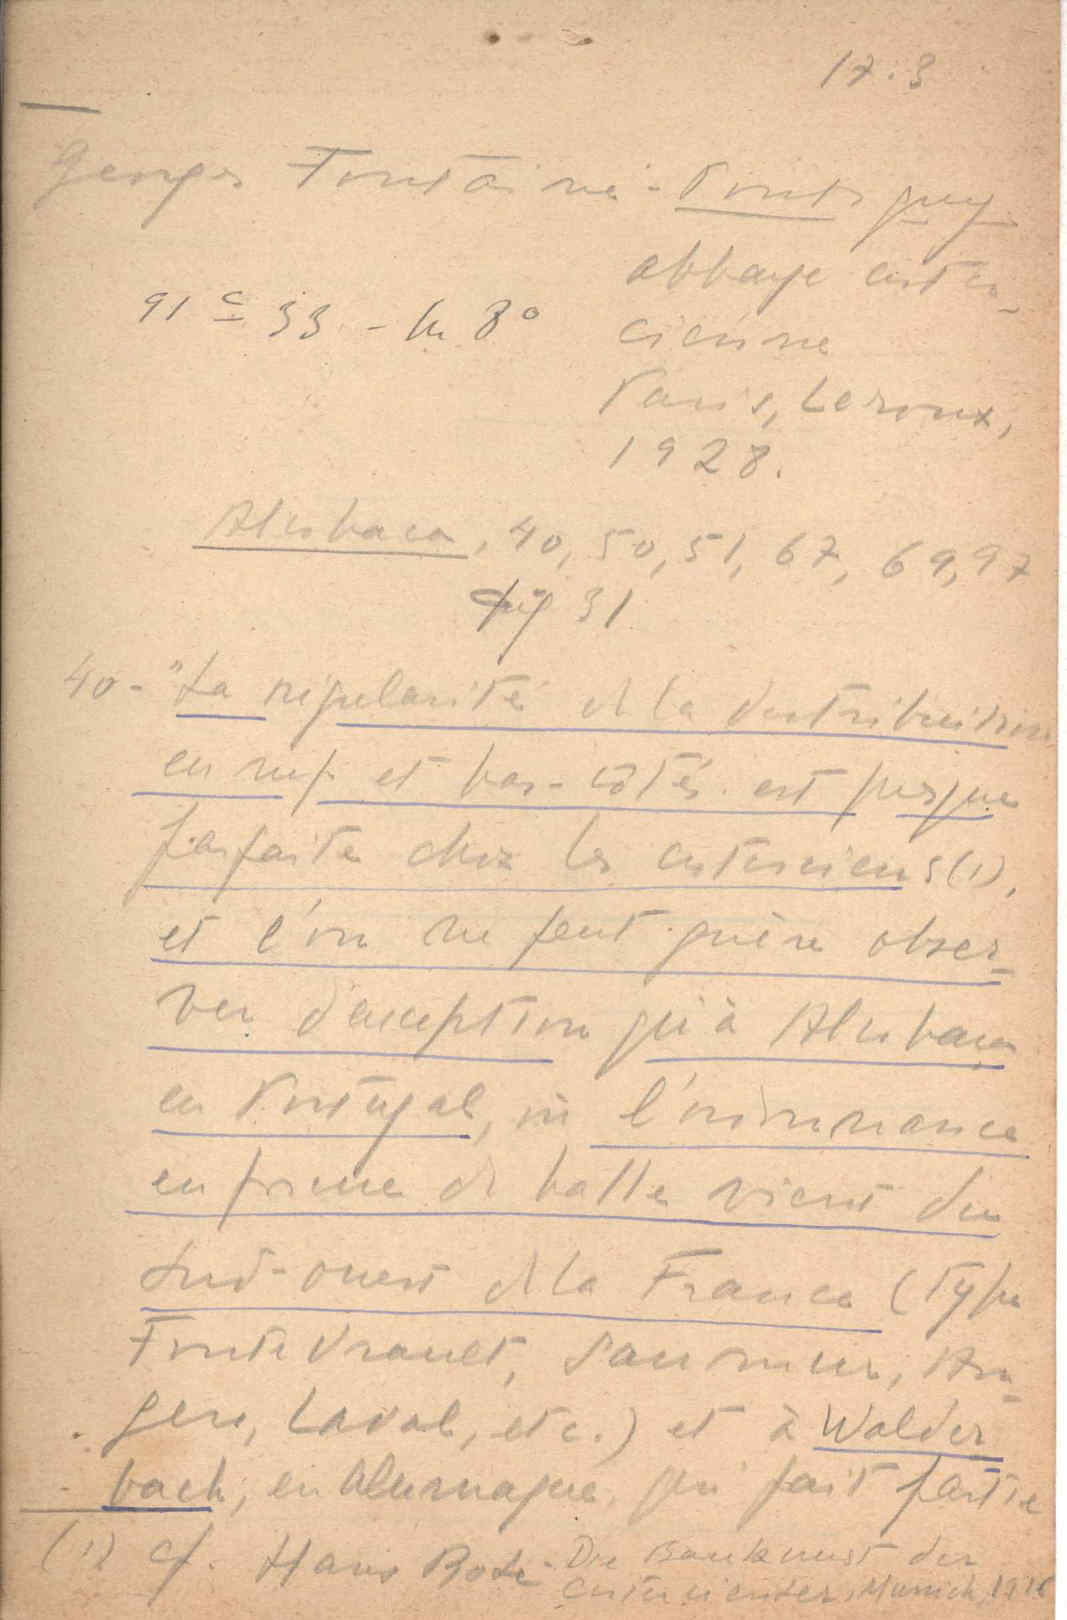 17.3
Georges Fontaine - Pontigny
abbaye cister-
cienne
91 C 33 - In 8º
Paris, Leroux,
1928.
Alcobaca, 40, 50, 51, 67, 69, 97
fig 31
40 - "La régularité de la distribution
en nef et bas-côtés est presque
parfaite chez les cisterciens (1),
et l'on ne peut guère obser-
ver d'exception qu'à Alcobaça
en Portugal, où l'ordonnance
en forme de halle vient du
Sud-ouest de la France (type
Fontevrault, Saumur, An-
gers, Laval, etc.) et à Walder
bach, en Allemagne, qui fait partie
(1) cf. Hans Rose - Die Baukunst der
Cistercienser, Munich, 1916